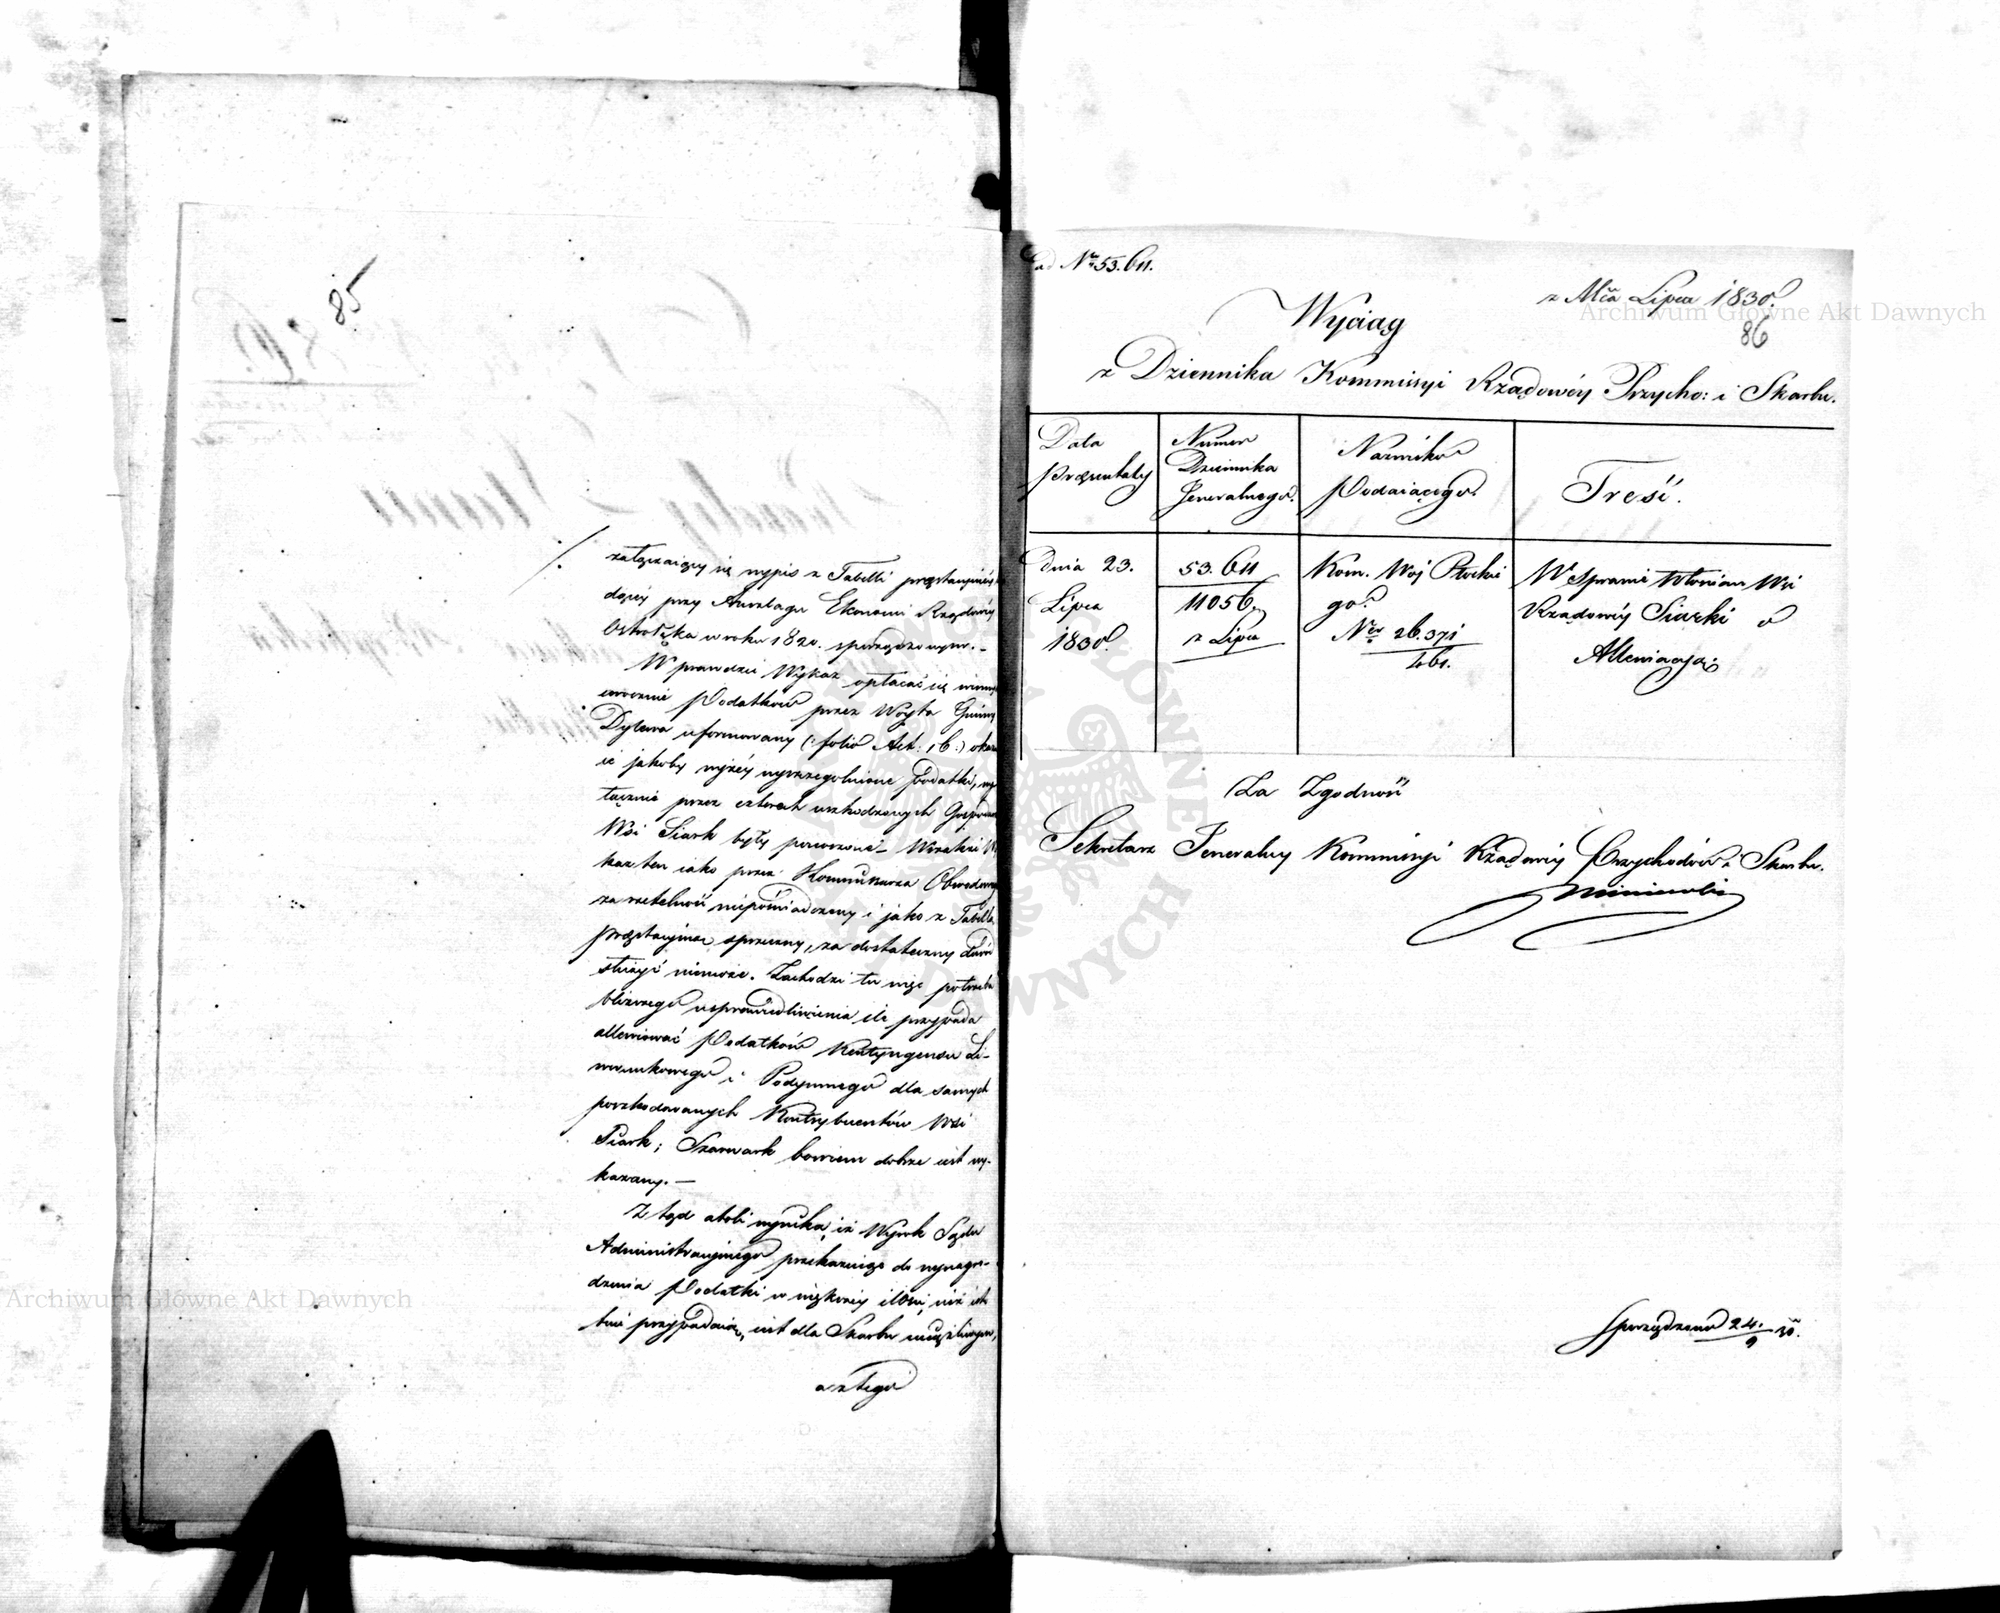 85
załączaiący się wypis z Tabelli præstacyinéy
dopiéy przy Anszlagu Ekonomii Rządowéy
Ostrołęka w roku 1820. sporządzonym. –
Wprawdzie Wykaz opłacać się winny
corocznie Podatków przez Woyta Gminy
Dylewo uformowany (: folio Akt: 16:) okazu
ie jakoby wyżéy wyszczególnione podatki, wy
łącznie przez czterech uszkodzonych Gospoda
Wsi Siark były ponoszone – Wszakże Wy
kaz ten iako przez Kommissarza Obwodowego
za rzetelność niepoświadczony i jako z Tabellą
præstacyiną sprzeczny, za dostateczny dowód
służyć niemoże. Zachodzi tu więc potrzeba
bliższego usprawiedliwienia ile przypada
allewiować Podatków Kontyngensu Li-
werunkowego i Podymnego dla samych
poszkodowanych Kontrybuentów Wsi
Siark; Szarwark bowiem dobrze iest wy-
kazany. –
Z tąd atoli wynika, iż Wyrok Sądu
Administracyinego przekazuiąc do wynagro-
dzenia Podatki w większéy ilości, niż isto
tnie przypadaią, iest dla Skarbu uciążliwym,
a z tego
ad Nr 53.611.
z Mca Lipca 1830.
86
Wyciąg
z Dziennika Kommissyi Rządowéy Przycho: i Skarbu.
Data
præzentaty
Numer
Dziennika
Jeneralnego.
Nazwisko
Podaiącego.
Treść.
Dnia 23.
Lipca
1830.
53.611
11056
z Lipca
Kom. Woj Płockie
go.
Nr 26.371
461.
W sprawie Włościan Wsi
Rządowéy Siarki o
Allewiacyą.
Za Zgodność
Sekretarz Jeneralny Kommissyi Rządowéy Przychodów i Skarbu.
Sporządzono 24/9 30.
Archiwum Główne Akt Dawnych
Archiwum Główne Akt Dawnych